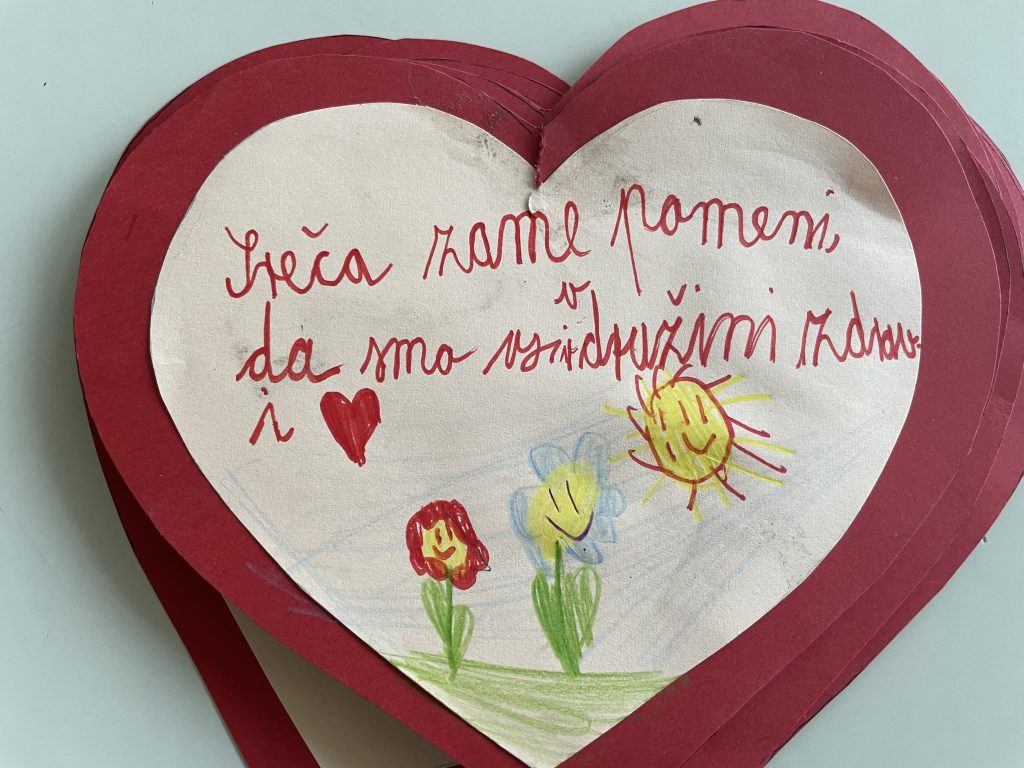 Sreča zame pomeni,
da smo vsi v družini zdrav-
i